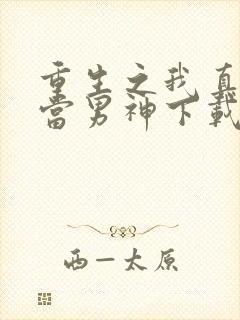 重生之我真
当男神下载
西一太原